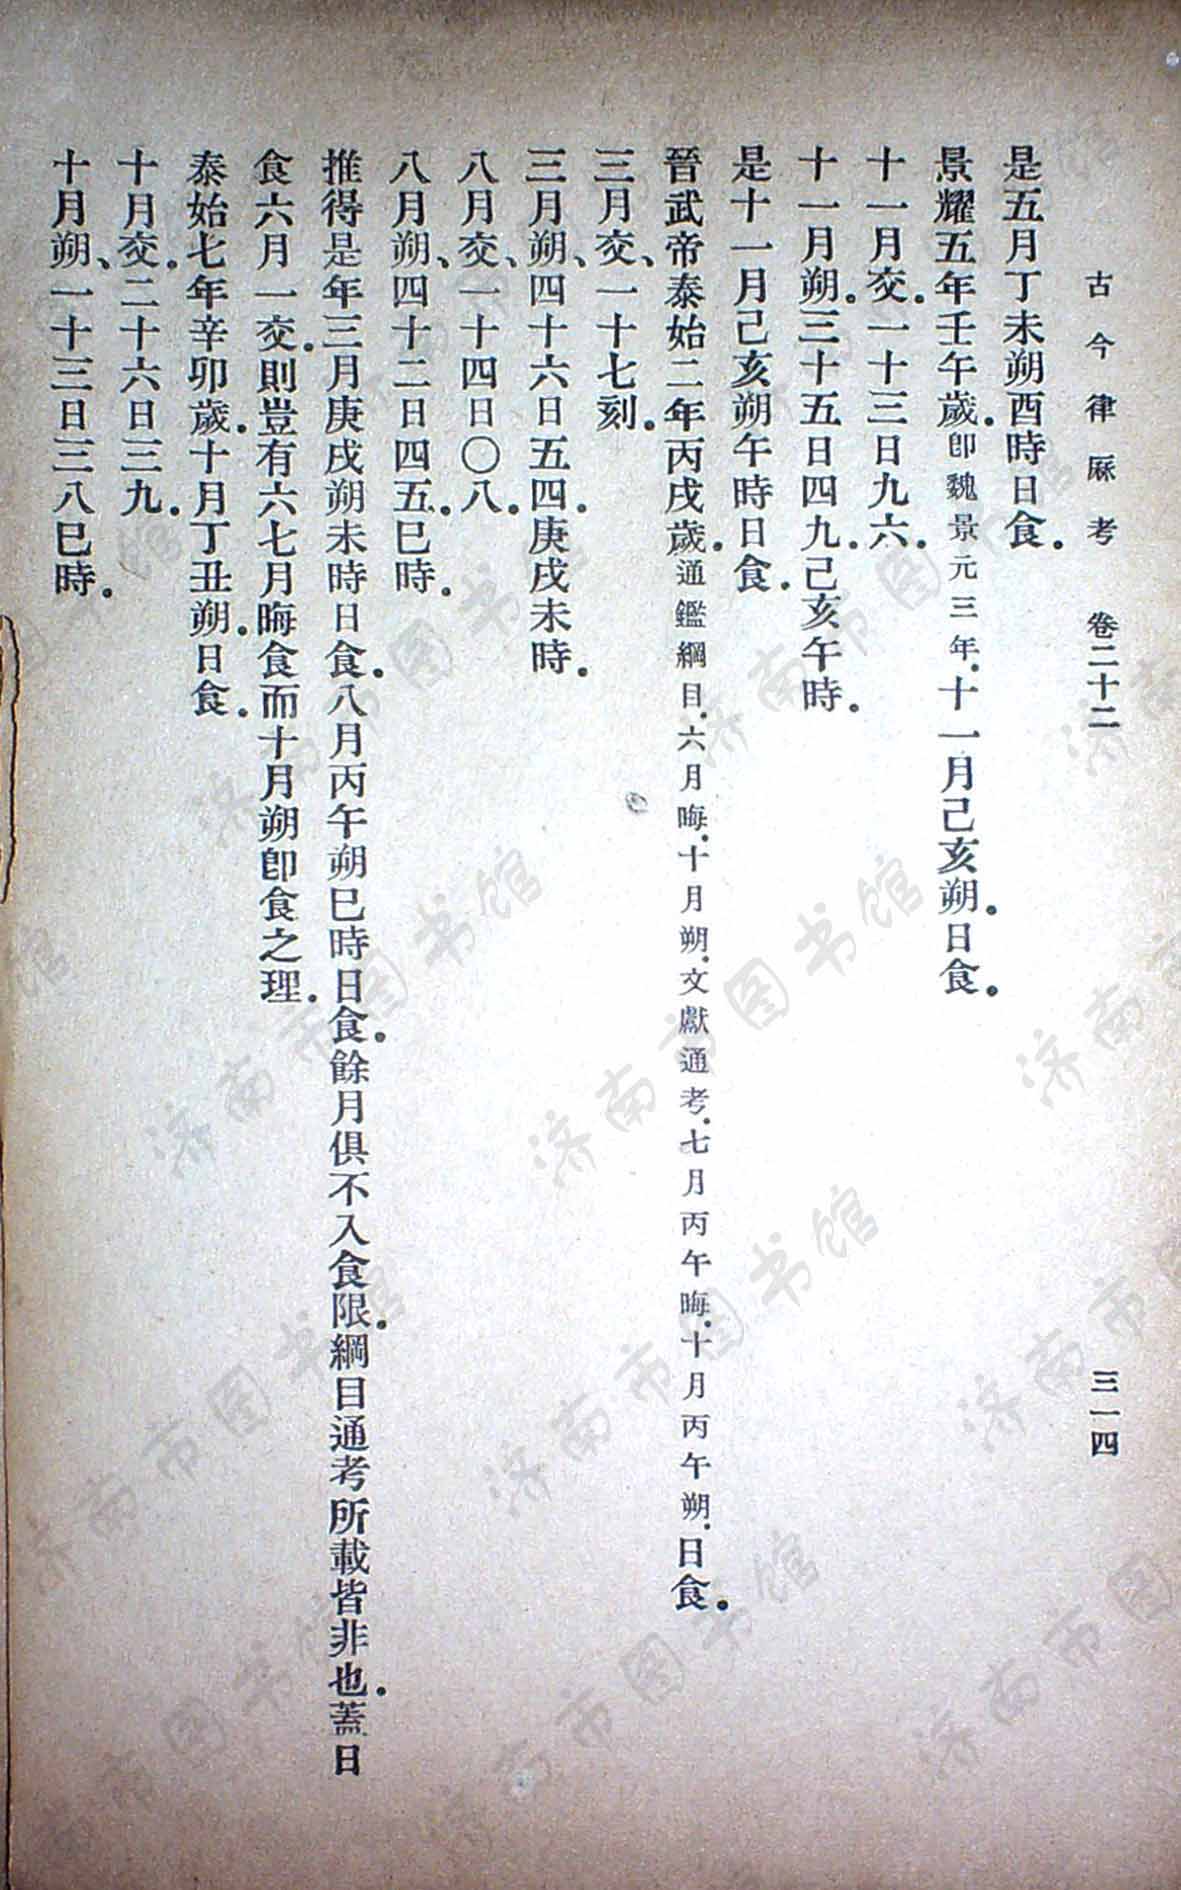 古今律厤考 卷二十二 三一四
是五月丁未朔酉時日食.
景耀五年壬午歲.卽魏景元三年.十一月己亥朔.日食.
十一月交.一十三日九六.
十一月朔.三十五日四九.己亥午時.
是十一月己亥朔午時日食.
晉武帝泰始二年丙戌歲.通鑑綱目.六月晦.十月朔.文獻通考.七月丙午晦.十月丙午朔.日食.
三月交、一十七刻.
三月朔、四十六日五四.庚戌未時.
八月交、一十四日〇八.
八月朔、四十二日四五.巳時.
推得是年三月庚戌朔未時日食.八月丙午朔巳時日食.餘月俱不入食限.綱目通考所載皆非也.蓋日
食六月一交.則豈有六七月晦食而十月朔卽食之理.
泰始七年辛卯歲.十月丁丑朔.日食.
十月交.二十六日三九.
十月朔、一十三日三八巳時.
济南市图书馆